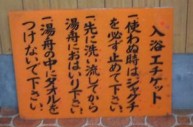 入浴エチケット
一、使わぬ時はジャグチ
を必ず止めて下さい
一、先に洗い流してから
湯舟におはいり下さい
一、湯舟の中にタオルを
つけないで下さい